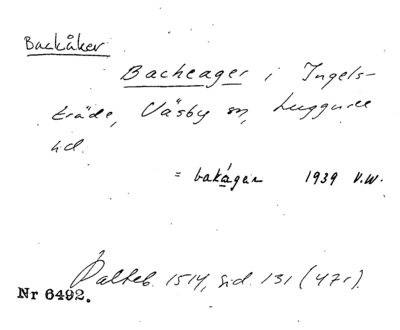 Backåker
Backeager i Ingels-
träde, Väsby sn, Luggude
hd.
= bakágær 1939 V.W.
Palteb. 1514, sid. 131 (47r).
Nr 6492.